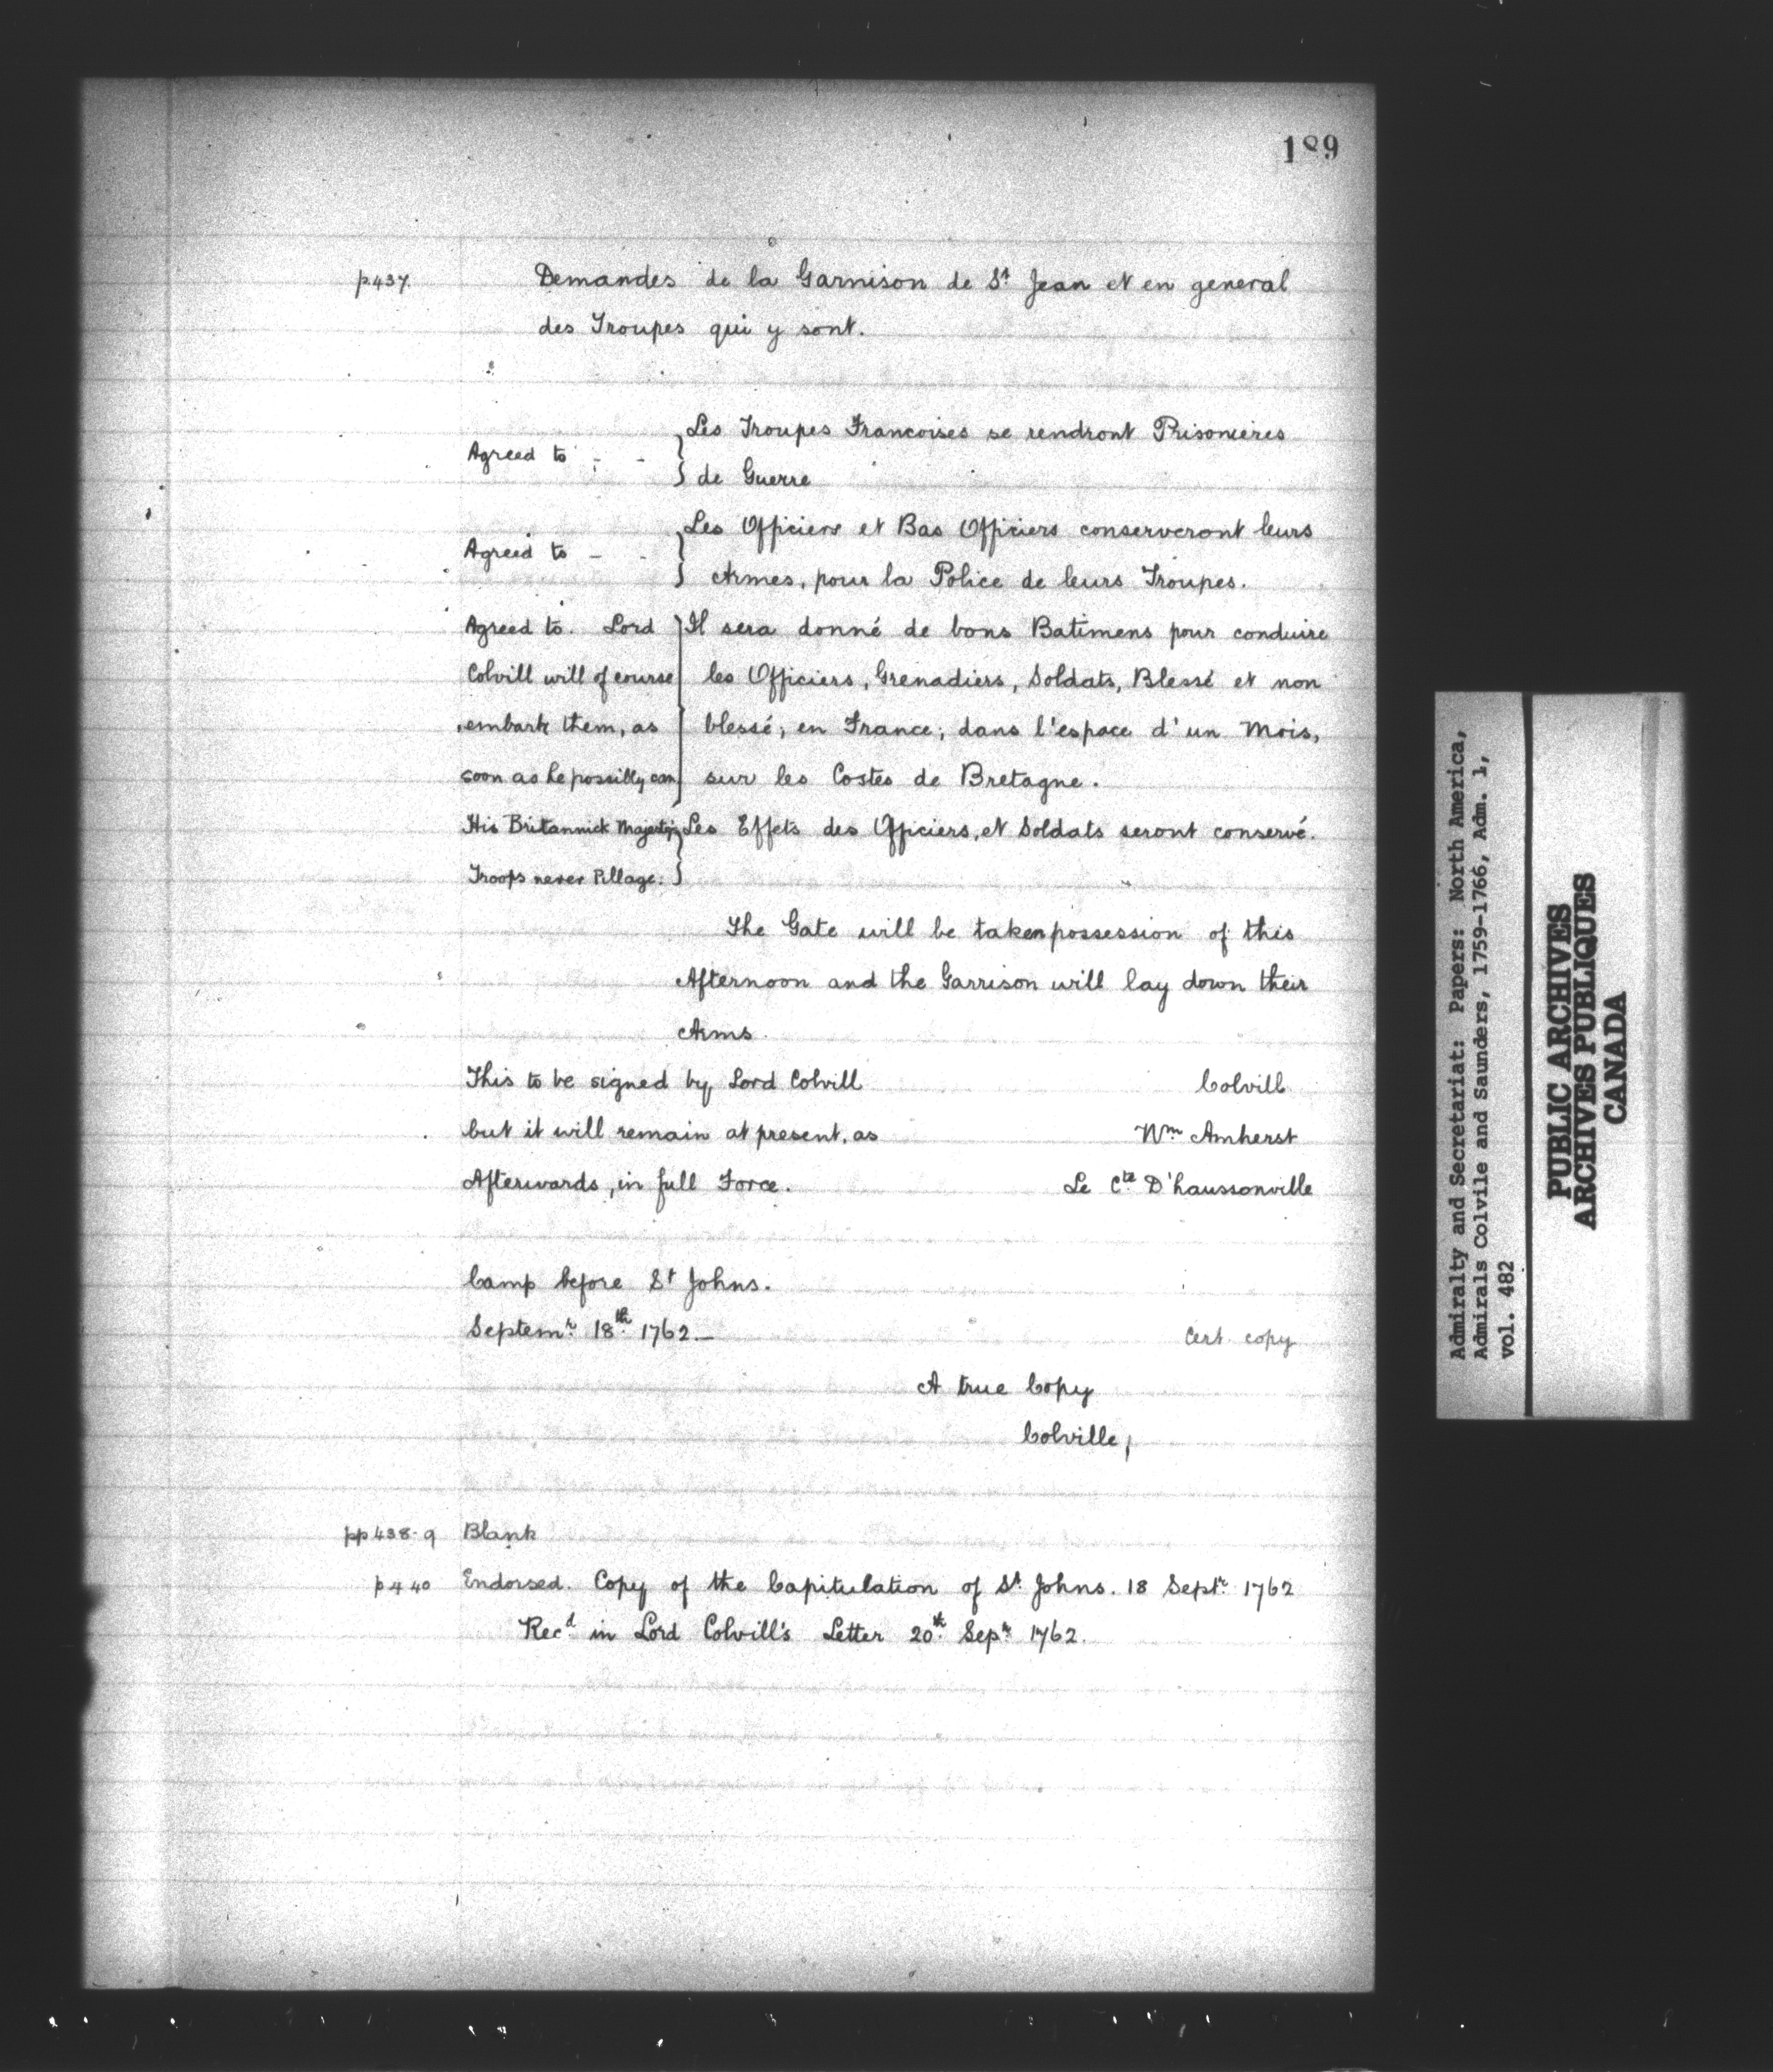 189
p.437. Demandes de la Garnison de St Jean et en general
des Troupes qui y sont.
Les Troupes Francoises se rendront Prisonieres
Agreed to - -
de Guerre
Les Officiers et Bas Officiers conserveront leurs
Agreed to - -
Armes, pour la Police de leurs Troupes.
Agreed to. Lord } Il sera donné de bons Batimens pour conduire
Colvill will of course les Officiers, Grenadiers, Soldats, Blessé et non
embark them, as blessé, en France; dans l'espace d'un Mois,
soon as he possilly can sur les Costes de Bretagne.
His Britannick Majesty's } Les Effets des Officiers, et Soldats seront conservé.
Troops never Pillage.
The Gate will be taken possession of this
Afternoon and the Garrison will lay down their
Arms.
This to be signed by Lord Colvill Colvill
but it will remain at present, as Wm Amherst
Afterwards, in full Force. Le Cte D'haussonville
Camp before St Johns.
Septemr 18th 1762.— Cert. copy
A true Copy
Colville,
pp 438-9 Blank
p 440 Endorsed. Copy of the Capitulation of St Johns. 18 Septr 1762
Recd in Lord Colvill's Letter 20th Sepr 1762.
Admiralty and Secretariat: Papers: North America,
Admirals Colvile and Saunders, 1759-1766, Adm. 1,
vol. 482
PUBLIC ARCHIVES
ARCHIVES PUBLIQUES
CANADA